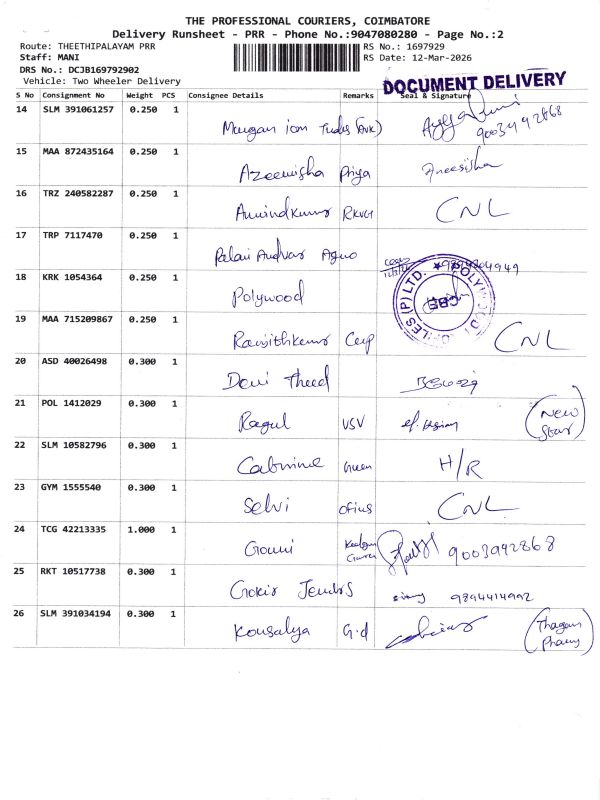 THE PROFESSIONAL COURIERS, COIMBATORE
Delivery Runsheet - PRR - Phone No.:9047080280 - Page No.:2
Route: THEETHIPALAYAM PRR RS No.: 1697929
Staff: MANI RS Date: 12-Mar-2026
DRS No.: DCJB169792902
Vehicle: Two Wheeler Delivery
DOCUMENT DELIVERY
S No Consignment No Weight PCS Consignee Details Remarks Seal & Signature
14 SLM 391061257 0.250 1 Murugan 9003992868
15 MAA 872435164 0.250 1 Azeemisha Priya
16 TRZ 240582287 0.250 1 Aravindkumar RKVG CNL
17 TRP 7117470 0.250 1 Palani Andvar Agro
18 KRK 1054364 0.250 1 Polywood CBE
19 MAA 715209867 0.250 1 Ranjithkumar CNL
20 ASD 40026498 0.300 1 Devi Theed
21 POL 1412029 0.300 1 Ragul VSV (New Star)
22 SLM 10582796 0.300 1 Cabrine Green H/R
23 GYM 1555540 0.300 1 Selvi CNL
24 TCG 42213335 1.000 1 Gowri 9003992868
25 RKT 10517738 0.300 1 9894414992
26 SLM 391034194 0.300 1 Kousalya G.d